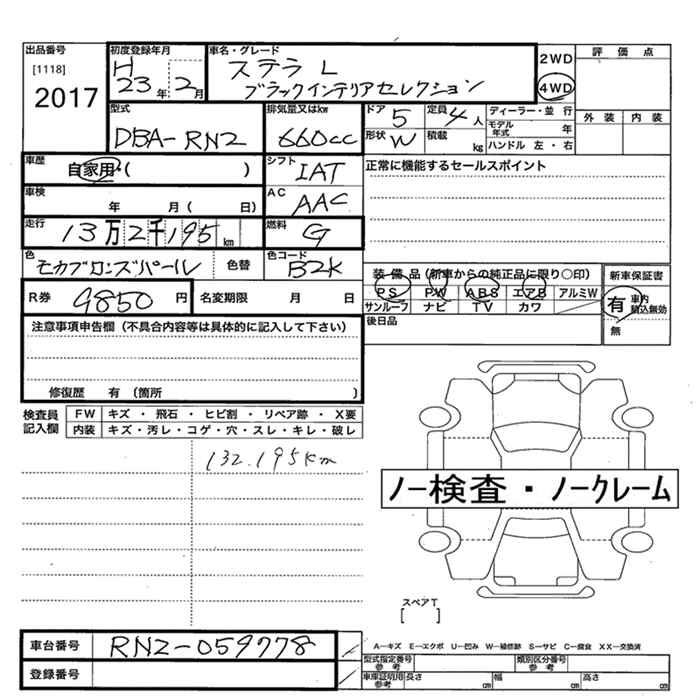 出品番号
[1118]
2017
初度登録年月
H
23年2月
車名・グレード
ステラ L
ブラックインテリアセレクション
2WD
4WD
評価点
外装 内装
型式
DBA-RN2
排気量又はkw
660cc
ドア 5 定員 4人
形状 W 積載 kg
ディーラー・並行
モデル年式 年
ハンドル 左・右
車歴
自家用・( )
シフト
IAT
正常に機能するセールスポイント
車検
年 月( 日)
AC
AAC
走行
13万2千195km
燃料
G
色
モカブロンズパール
色替
色コード
B2K
装備品(新車からの純正品に限り○印)
PS PW ABS エアB アルミW
サンルーフ ナビ TV カワ
新車保証書
有 車内積込無効
無
R券 9850円
名変期限 月 日
後日品
注意事項申告欄(不具合内容等は具体的に記入して下さい)
修復歴 有(箇所 )
検査員記入欄
FW キズ・飛石・ヒビ割・リペア跡・X要
内装 キズ・汚レ・コゲ・穴・スレ・キレ・破レ
132,195km
ノー検査・ノークレーム
スペアT
[ ]
車台番号 RN2-059778
登録番号
A—キズ E—エクボ U—凹み W—補修跡 S—サビ C—腐食 XX—交換済
型式指定番号参考
類別区分番号参考
車庫証明用参考 長さ cm 幅 cm 高さ cm